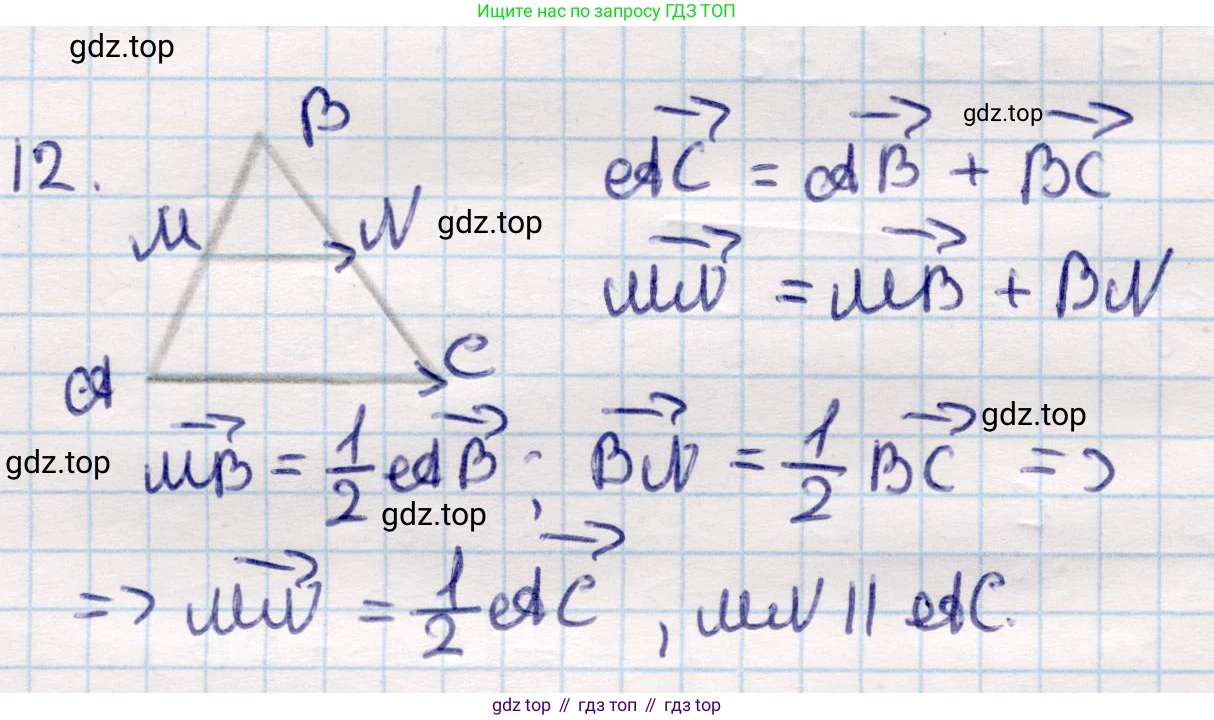 Ищите нас по запросу ГДЗ ТОП
gdz.top
12.
B
M
N
A
C
gdz.top
AC = AB + BC
gdz.top
MN = MB + BN
gdz.top
MB = 1/2 AB ; BN = 1/2 BC =>
gdz.top
gdz.top
=> MN = 1/2 AC , MN || AC.
gdz.top // гдз топ // гдз top